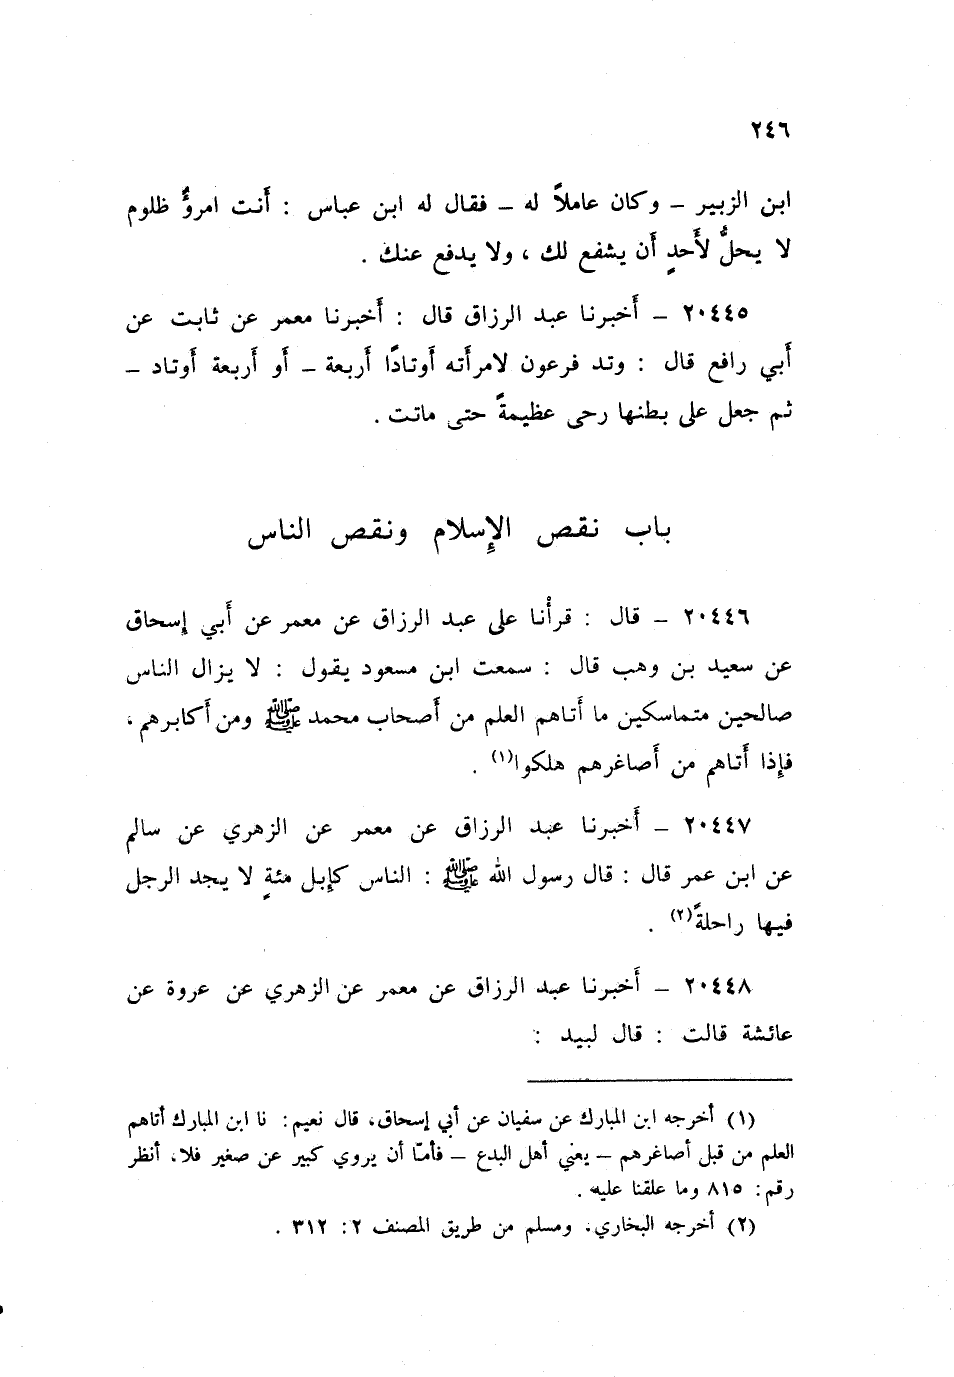 ٢٤٦
ابن الزبير ــ وكان عاملاً له ــ فقال له ابن عباس : أَنت امرؤٌ ظلوم
لا يحلُّ لأَحدٍ أَن يشفع لك ، ولا يدفع عنك .
٢٠٤٤٥ ــ أَخبرنا عبد الرزاق قال : أَخبرنا معمر عن ثابت عن
أَبي رافع قال : وتد فرعون لامرأَته أَوتادًا أَربعة ــ أَو أَربعة أَوتاد ــ
ثم جعل على بطنها رحى عظيمةً حتى ماتت .
باب نقص الإِسلام ونقص الناس
٢٠٤٤٦ ــ قال : قرأْنا على عبد الرزاق عن معمر عن أَبي إِسحاق
عن سعيد بن وهب قال : سمعت ابن مسعود يقول : لا يزال الناس
صالحين متماسكين ما أَتاهم العلم من أَصحاب محمد ﷺ ومن أَكابرهم ،
فإِذا أَتاهم من أَصاغرهم هلكوا(١) .
٢٠٤٤٧ ــ أَخبرنا عبد الرزاق عن معمر عن الزهري عن سالم
عن ابن عمر قال : قال رسول الله ﷺ : الناس كإِبل مئةٍ لا يجد الرجل
فيها راحلةً(٢) .
٢٠٤٤٨ ــ أَخبرنا عبد الرزاق عن معمر عن الزهري عن عروة عن
عائشة قالت : قال لبيد :
(١) أخرجه ابن المبارك عن سفيان عن أبي إسحاق، قال نعيم: نا ابن المبارك أتاهم
العلم من قبل أصاغرهم ــ يعني أهل البدع ــ فأمّا أن يروي كبير عن صغير فلا، أنظر
رقم: ٨١٥ وما علقنا عليه .
(٢) أخرجه البخاري، ومسلم من طريق المصنف ٢: ٣١٢ .